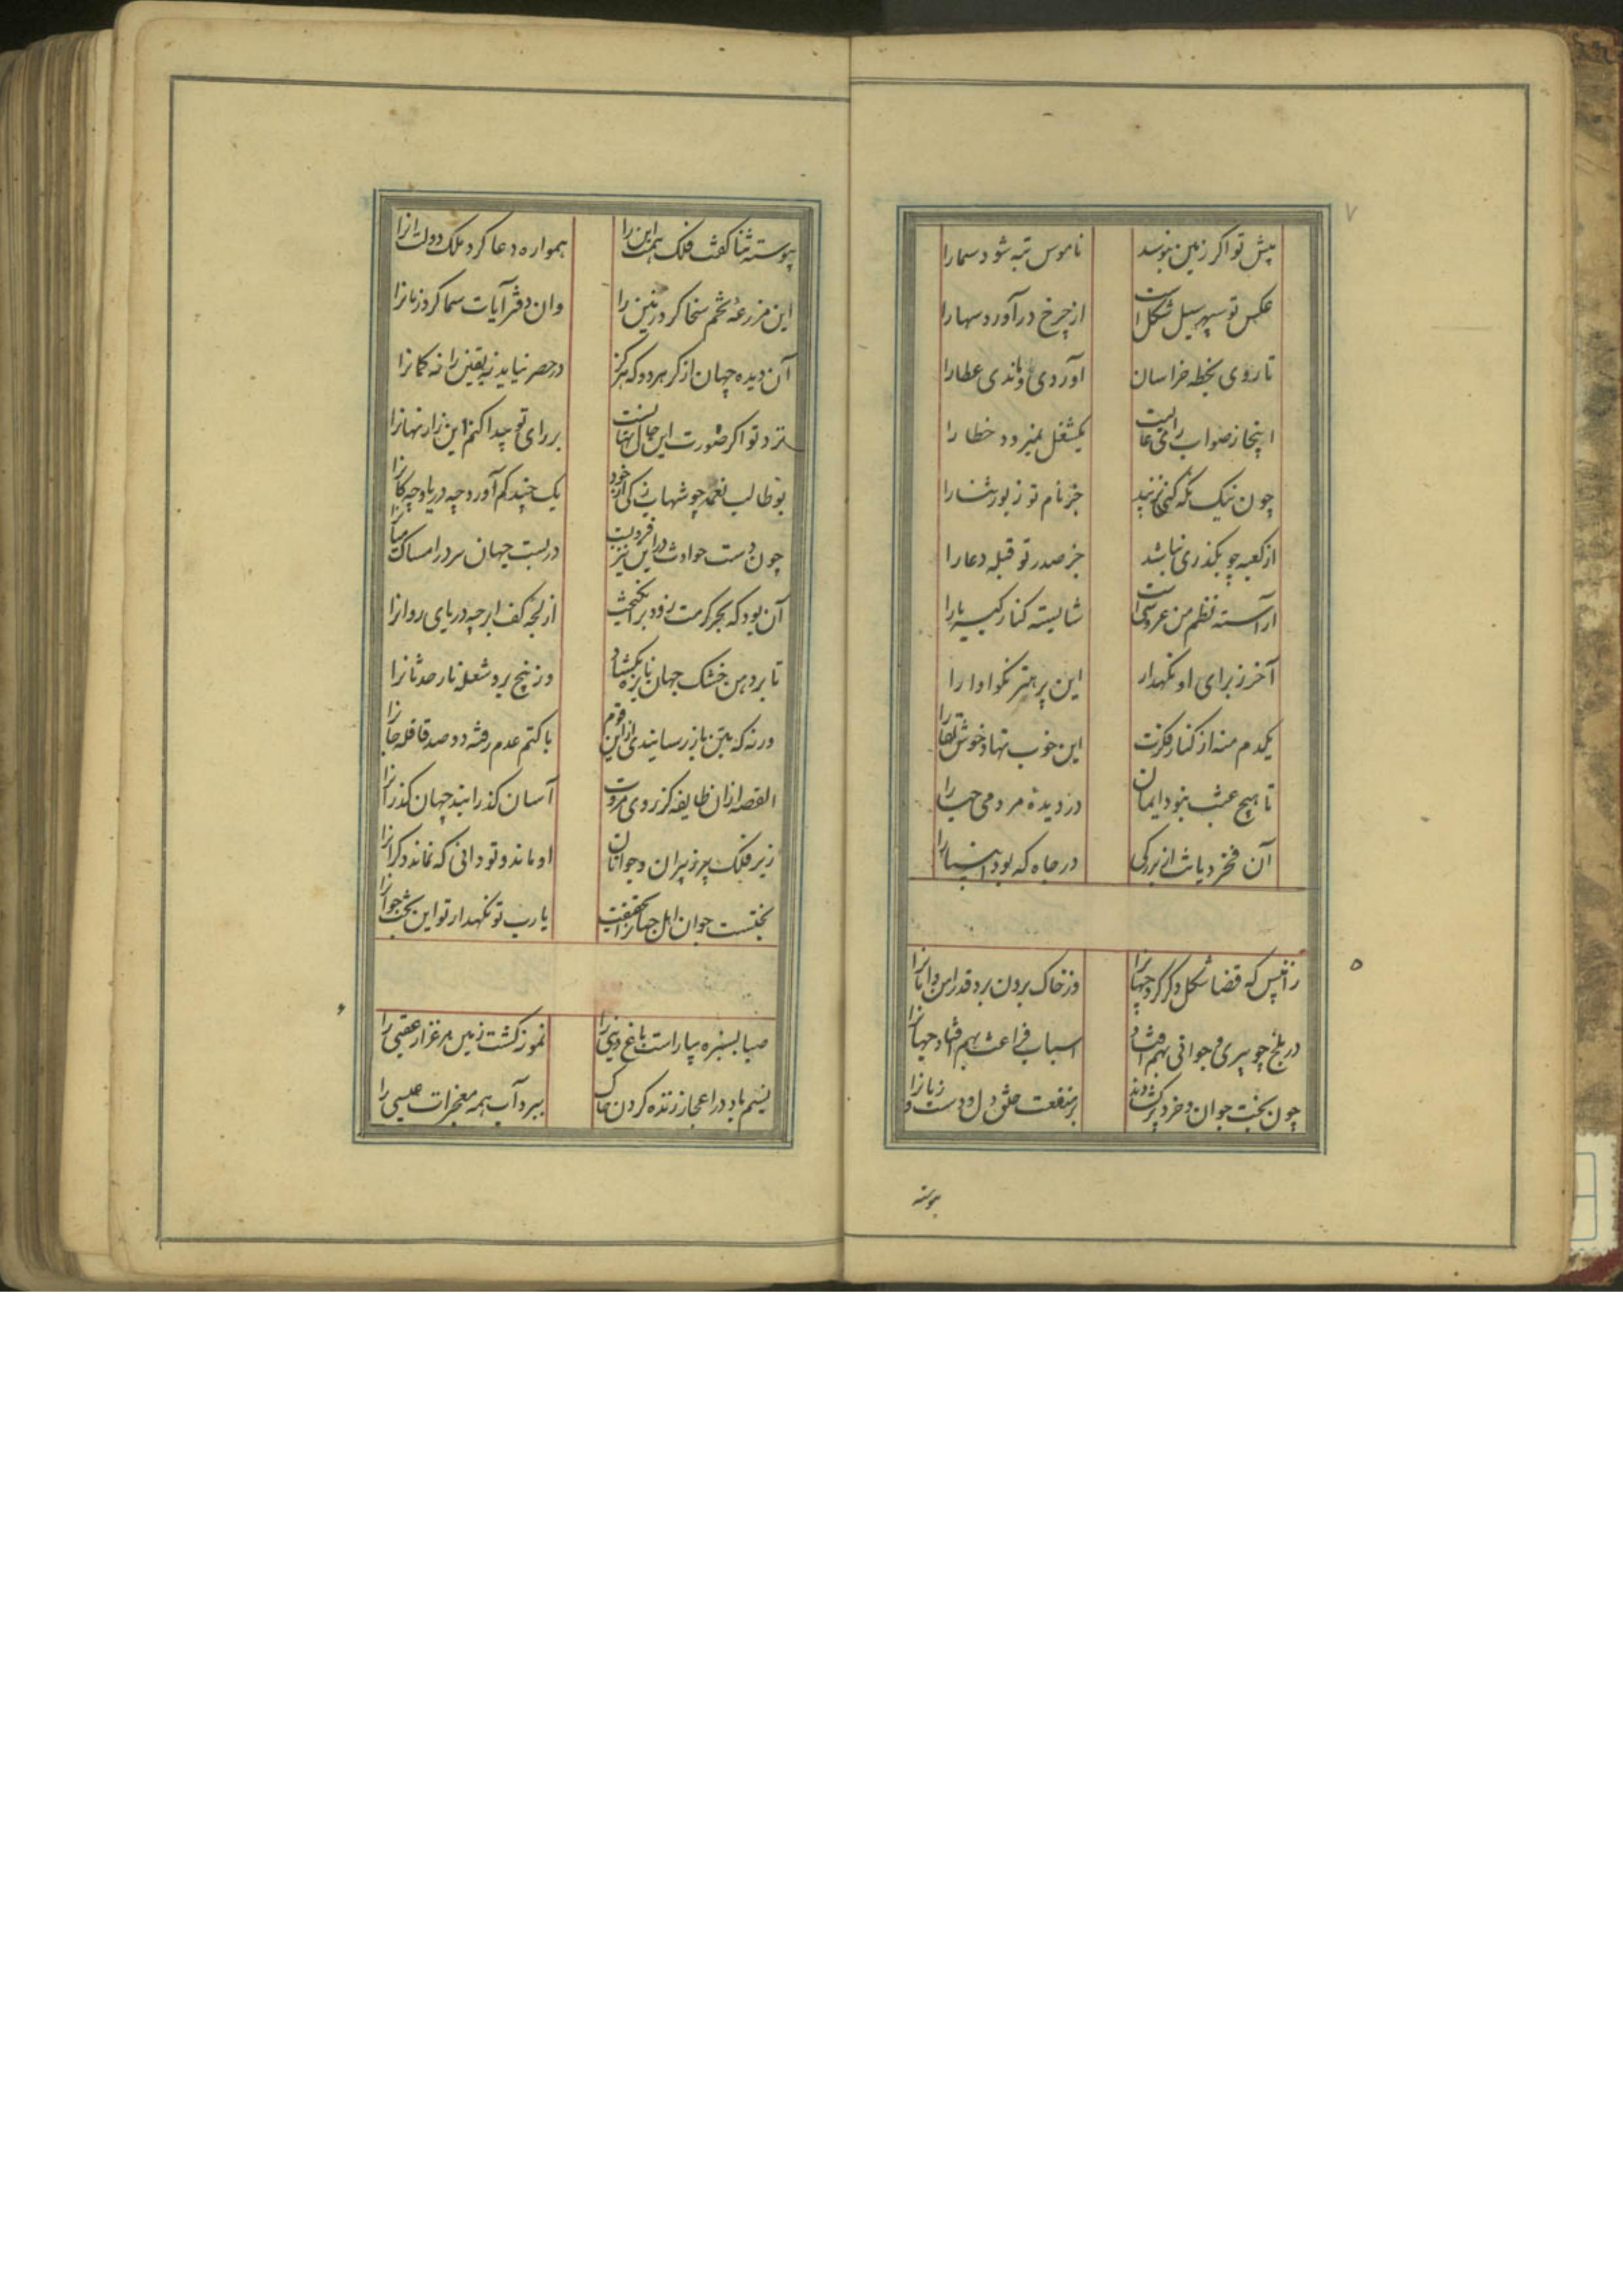 ۷
پیش تو اگر زمین نبوسد ناموس تبه شود سما را
عکس تو سپهر سیل شکل است از چرخ درآورد سها را
تا روی بخطه خراسان آوردی و ماندی عطا را
اینجا ز صواب رائیت یکشغل نمیرود خطا را
چون نیک نگه کنی نزیبد جز نام تو زیور ثنا را
از کعبه چو بگذری نباشد جز صدر تو قبله دعا را
آراسته نظم من عروسی است شایسته کنار کبریا را
آخر ز برای او نگهدار این پر هنر نکو ادا را
یکدم منه از کنار فکرت این خوب نهاد خوش لقا را
تا هیچ عبث نبود ایمان در دیده مردمی حیا را
آن فخر دیانت از بزرگی در جاه که بود انبیا را
زانپس که قضا شکل دگر کرد جهانرا وز خاک برون برد قدر امن و امانرا
در بلخ چو پیری و جوانی بهم افتاد اسباب فراغت بهم افتاد جهانرا
چون بخت جوان و خرد پیر گشادند بر منفعت خلق دل و دست و زبانرا
۵
پیوسته
پیوسته ثنا گفت فلک همت این را همواره دعا کرد ملک دولت آنرا
این مزرعهٔ تخم سخا کرد زمین را وان دفتر آیات سما کرد زمانرا
آن دیده جهان از کر هر دو که هرگز در حصر نیاید نه یقین را نه گمانرا
نزد تو اگر صورت این حال نهانست بر رای تو پیدا کنم این راز نهانرا
بو طالب نعمه چو شهاب زکی از خود یک چند کم آورد چه دریا و چه کانرا
چون دست حوادث در این نیز فروبست دربست جهان سر در امساک میانرا
آن بود که بحر کرمت زود برانگیخت از لجه کف ابر چه دریای روانرا
تا بر دهن خشک جهان نایژه بگشاد وز بیخ برد شعله نار حدثانرا
ورنه که بتن باز رسانیدی ازین قوم با کتم عدم رفته دو صد قافله جانرا
القصه از ان طایفه کز روی مروت آسان گذرانیند جهان گذرانرا
زیر فلک پیر ز پیران و جوانان او ماند و تو دانی که نماند دگرانرا
بختست جوان اهل جهانرا بحقیقت یا رب تو نگهدار تو این بخت جوانرا
۶
صبا بسبزه بیاراست باغ دنیی را نمونه گشت زمین مرغزار عقبی را
نسیم باد در اعجاز زنده کردن خاک ببرد آب همه معجزات عیسی را